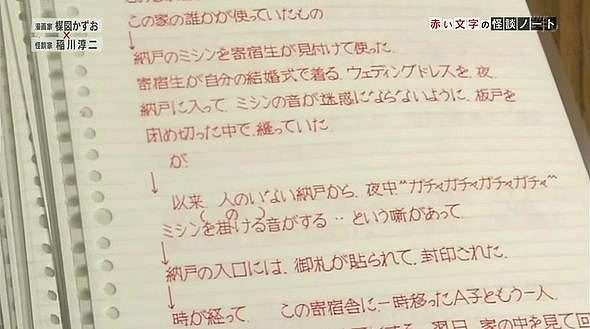 漫画家 楳図かずお
×
怪談家 稲川淳二
赤い文字の怪談ノート
この家の誰かが使っていたもの
↓
納戸のミシンを寄宿生が見付けて使った
寄宿生が自分の結婚式で着る、ウェディングドレスを、夜、
納戸に入って、ミシンの音が迷惑にならないように、板戸を
閉め切った中で、縫っていた
が、
↓
以来、人のいない納戸から、夜中“ガチャガチャガチャガチャ”
ミシンを掛ける音がする‥という噺があって
↓
納戸の入口には、御札が貼られて、封印された
↓
時が経って、この寄宿舎に一時移ったA子ともう一人
翌日、家の中を見て回